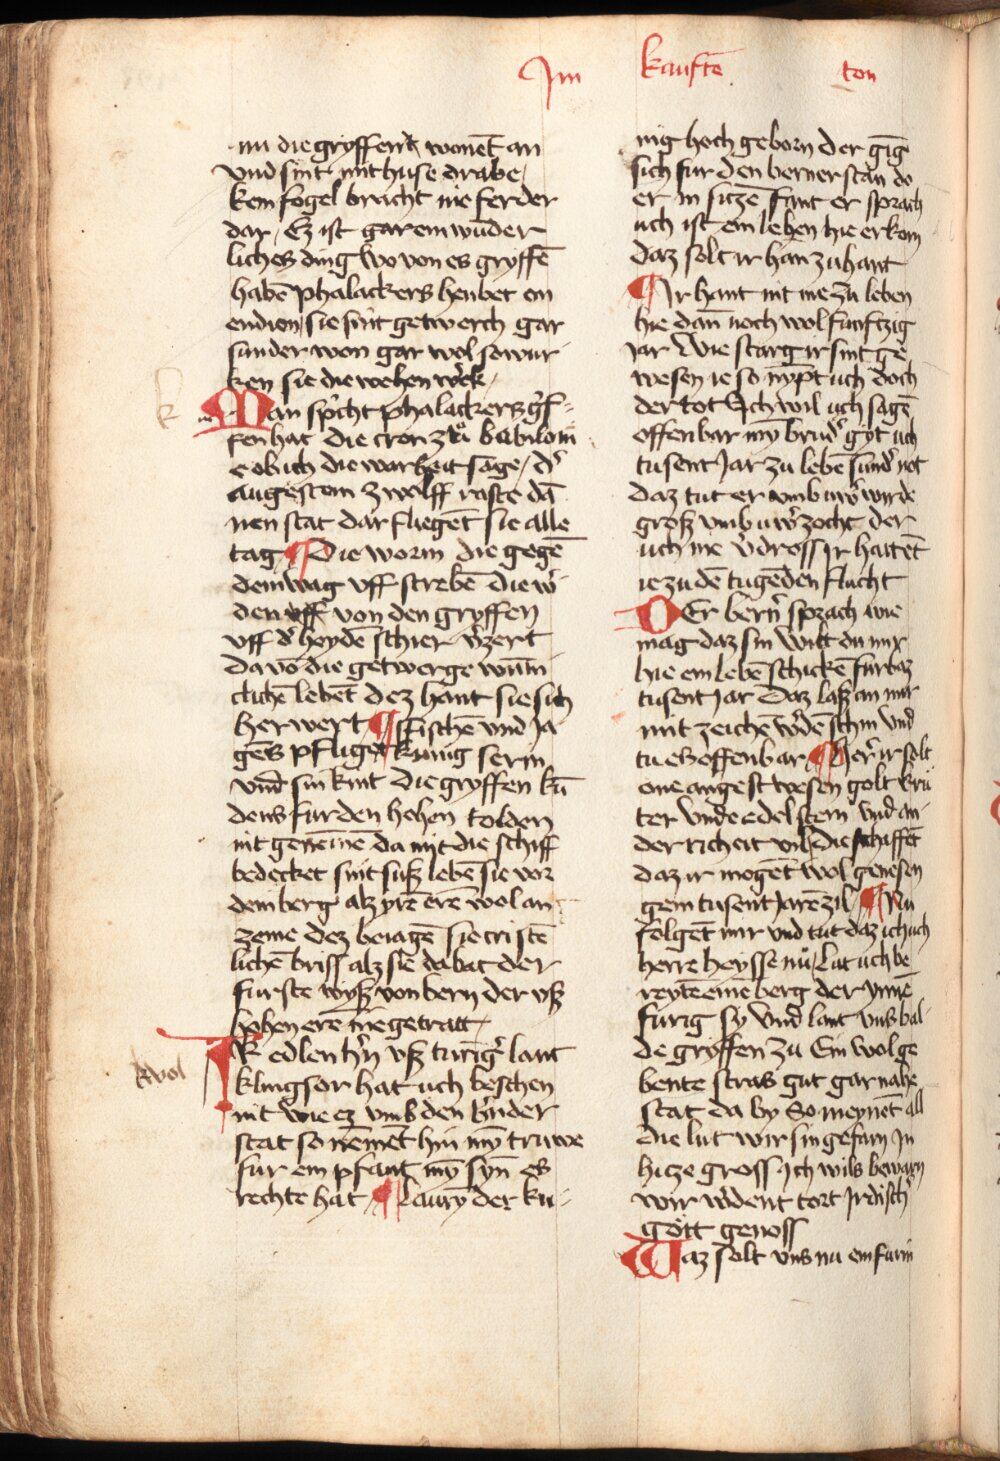 Im kauftē ton
nu die gryffen wonēt an
vnd sint mit huse drabe /
kem fogel bracht nie ferder
dar / Ez ist gar ein wūder
liches ding wo von es gryffē
habē phalackers henbet on
endion / sie sint getwerch gar
sunder won gar wol so wur
ken sie die wehen w'ck /
Man sp'cht phalackers g'f-
fen hat die cron zu babiloni
e ob ich die warheit sage / d'
augestein zwolff raste dā
nen stat dar fliegēt sie alle
tag ¶ Die worm die gegē
dem wag vff strebē die w'
den von den gryffen
vff d' heydē schier v'zert
da vō die getwerge wūn
clichē lebēt dez hant sie sich
her wert ¶ Fischē vnd Ja
gēs pfliget kunig serin
vnd sin kint die gryffen kū
dens fur den hohen tolden
nit genemē da mit die schiff
bedecket sint suß lebē sie vor
dem berg alz yrē erē wol an
zeme dez beiagē sie cristē
lichē briss alz sie da bat der
furste wyß von bern der vß
hohen ere nie getratt /
kwol
IR edlen h'n vß turig' lant
klingsor hat uch beschen
nit wie ez vmb den b'nder
stat so nēmēt hin mȳ truwe
fur ein pfant mȳ syn es
rechte hat ¶ Laurȳ der ku-
nig hoch geborn der gīg
sich fur den berner stan do
er in sitzē fant er sprach
uch ist ein leben hie erkorn
daz solt ir han zu hant
¶ Ir hant nit me zu leben
hie dan noch wol funftzig
jar Wie starg ir sint ge
wesen ie so nȳpt uch doch
der tot Ich wil uch sagē
offenbar mȳ brud' gyt uch
tusent Jar zu lebē sund' not
daz tut er vmb uw' wirde
groß vmb uw' zocht der
uch nie v'dross Ir hattēt
ie zu dē tugēden flucht
DEr bern' sprach wie
mag daz sin wilt du mir
hie ein lebē schickē furbaz
tusent Jar Daz laß an mir
mit zeichē w'dē schin vnd
tu es offenbar ¶ Her' ir solt
one angest wesen golt kru
ter vnde edel stein vnd an-
der richeit vil Die schiffēt
daz ir mogēt wol genesen
gein tusent Jarē zil / ¶ Nu
folgēt mir vnd tut daz ich uch
herre heysse nū / Lat uch be
reytē einē berg der ynnē
furig sy vnd lant vns bal-
de gryffen zu Ein wol ge
bente stras gut gar nahe
stat da by So meynēt all
die lut wir sin gefarn In
hitze gross Ich wils bewarn
wir w'dent tort Irdisch'
gott genoss
Waz solt vns nu ein farin